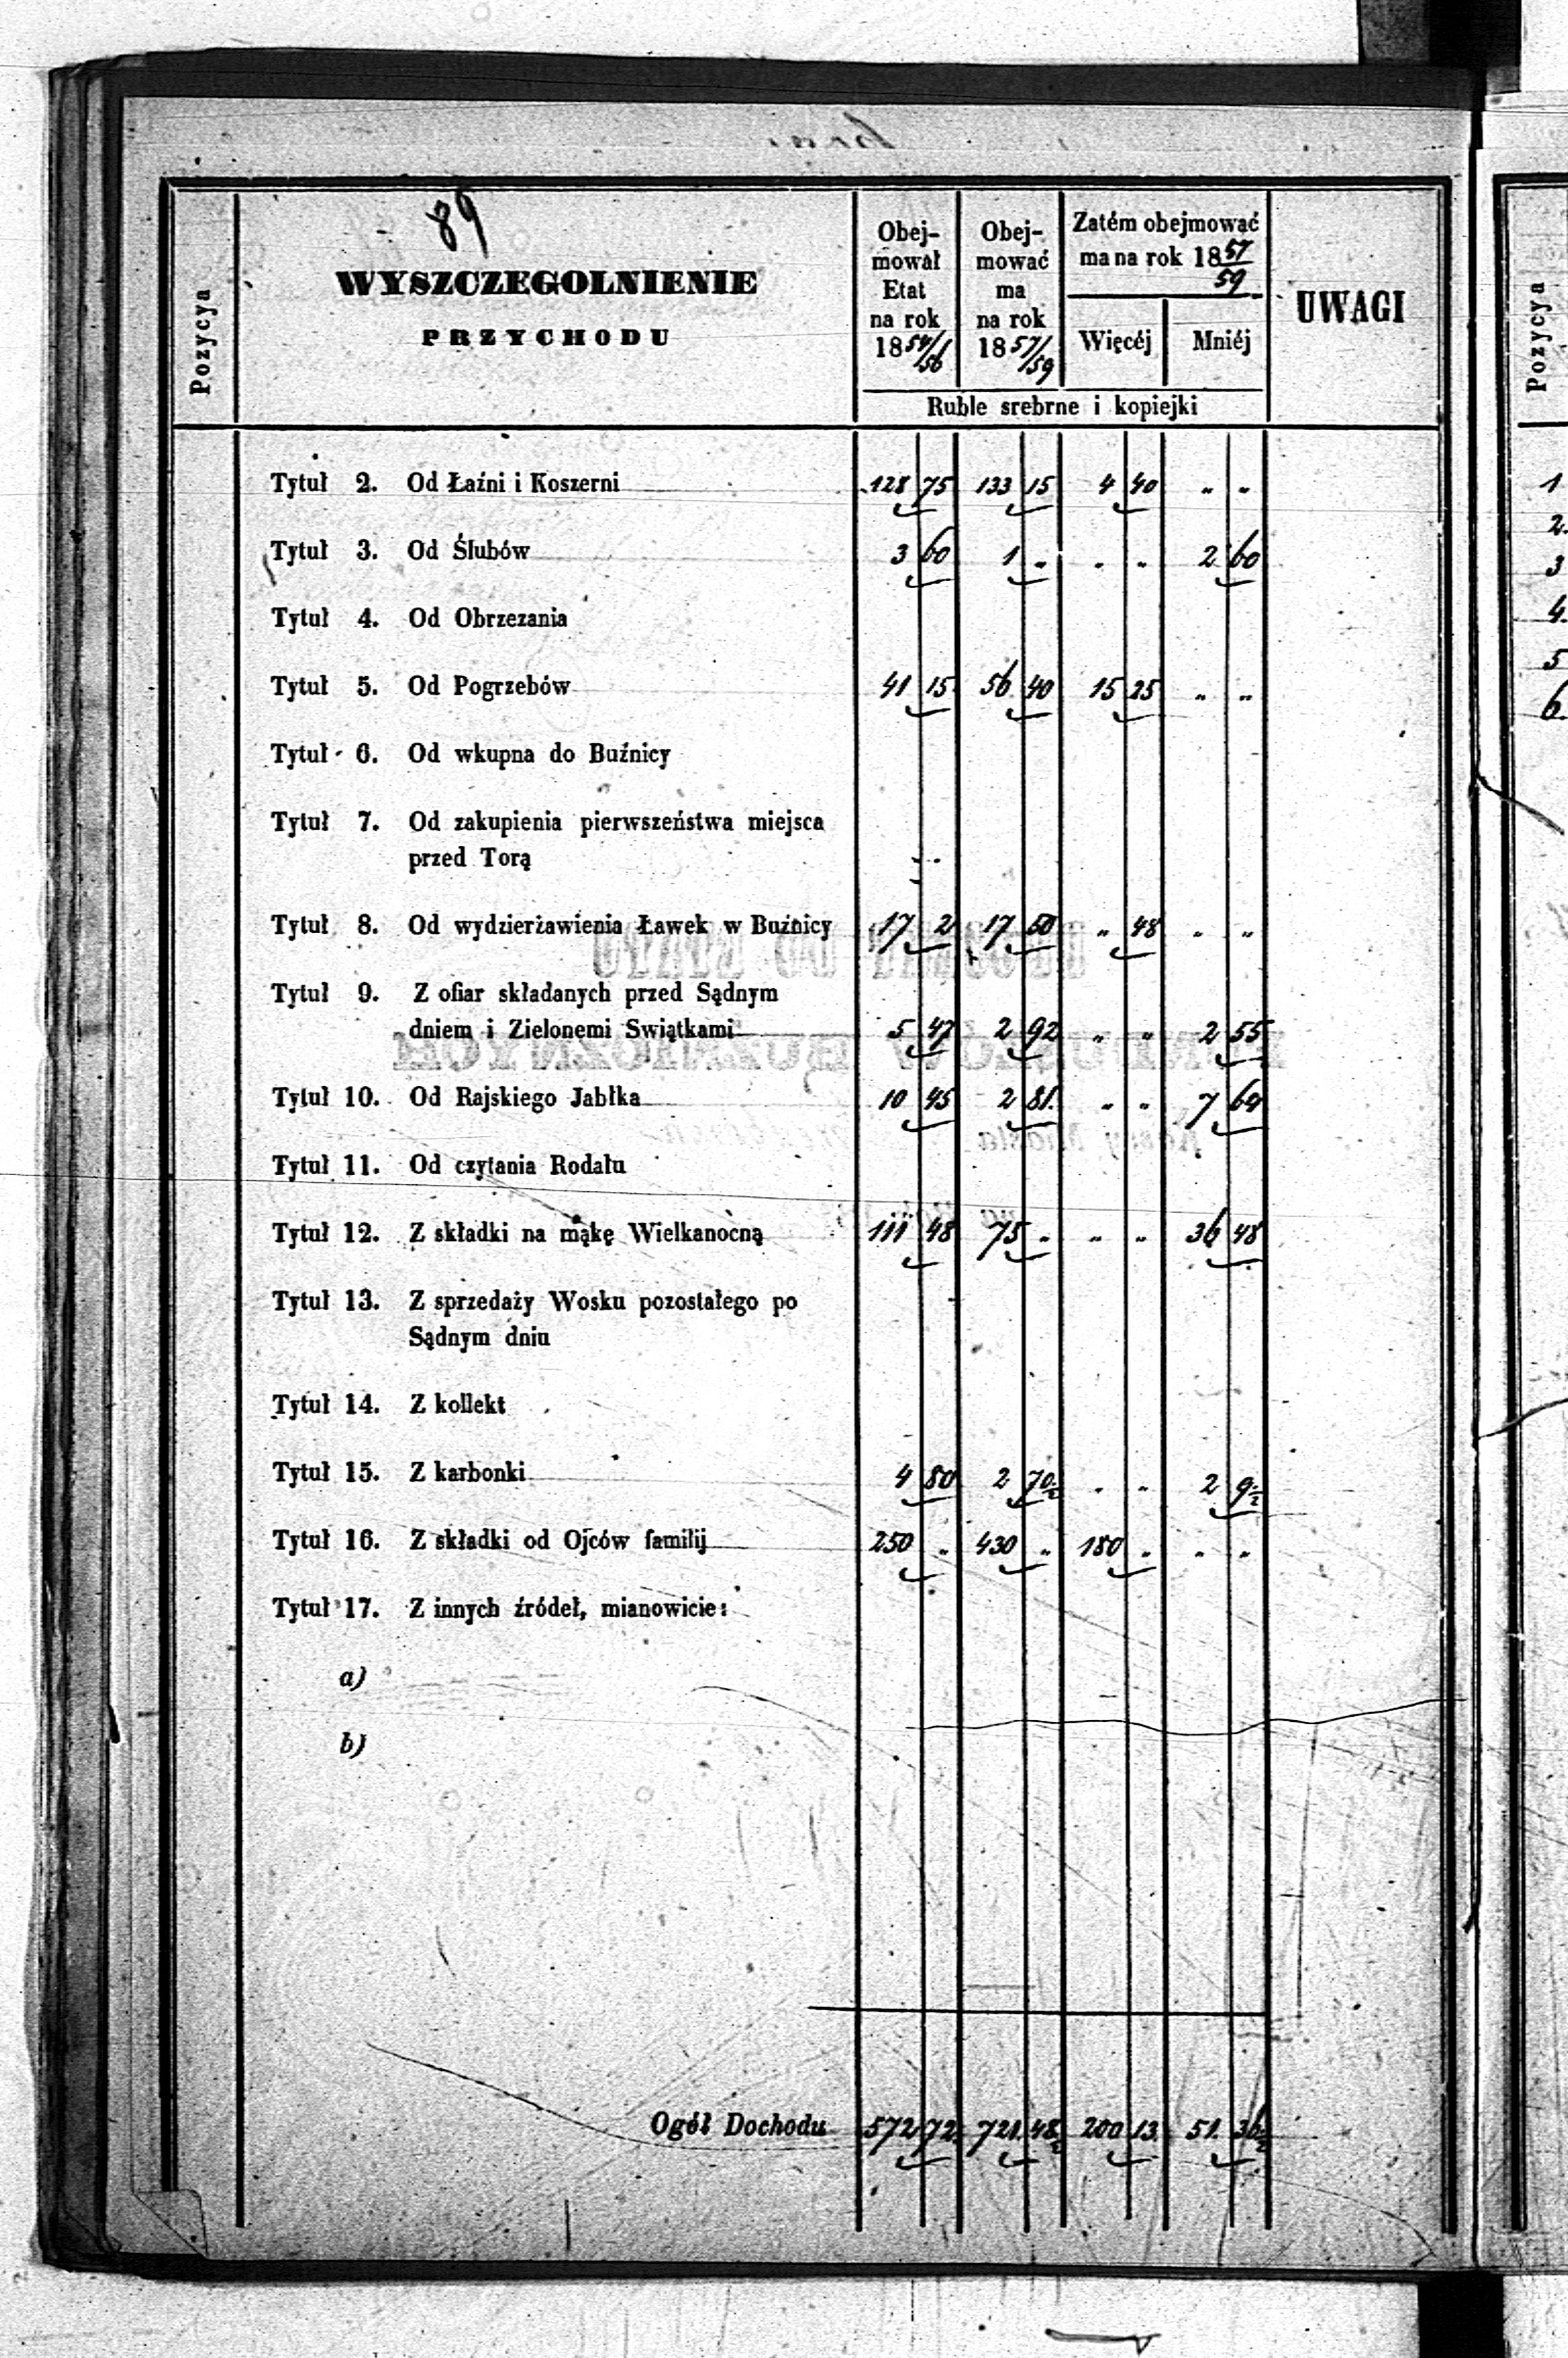 89
Pozycya
WYSZCZEGOLNIENIE
PRZYCHODU
Obej-
mował
Etat
na rok
18 54/56
Obej-
mować
ma
na rok
18 57/59
Zatém obejmować
ma na rok 18 57/59
Więcéj Mniéj
Ruble srebrne i kopiejki
UWAGI
Tytuł 2. Od Łaźni i Koszerni 128 75 133 15 4 40 „ „
Tytuł 3. Od Ślubów 3 60 1 „ „ „ 2 60
Tytuł 4. Od Obrzezania
Tytuł 5. Od Pogrzebów 41 15 56 40 15 25 „ „
Tytuł 6. Od wkupna do Buźnicy
Tytuł 7. Od zakupienia pierwszeństwa miejsca
przed Torą
Tytuł 8. Od wydzierżawienia Ławek w Buźnicy 17 2 17 50 „ 48 „ „
Tytuł 9. Z ofiar składanych przed Sądnym
dniem i Zielonemi Swiątkami 5 47 2 92 „ „ 2 55
Tytuł 10. Od Rajskiego Jabłka 10 45 2 81 „ „ 7 64
Tytuł 11. Od czytania Rodału
Tytuł 12. Z składki na mąkę Wielkanocną 111 48 75 „ „ „ 36 48
Tytuł 13. Z sprzedaży Wosku pozostałego po
Sądnym dniu
Tytuł 14. Z kollekt
Tytuł 15. Z karbonki 4 80 2 70½ „ „ 2 9½
Tytuł 16. Z składki od Ojców familij 250 „ 430 „ 180 „ „ „
Tytuł 17. Z innych źródeł, mianowicie:
a)
b)
Ogół Dochodu 572 72 721 48½ 200 13 51 36½
Pozycya
1
2.
3
4.
5
6.